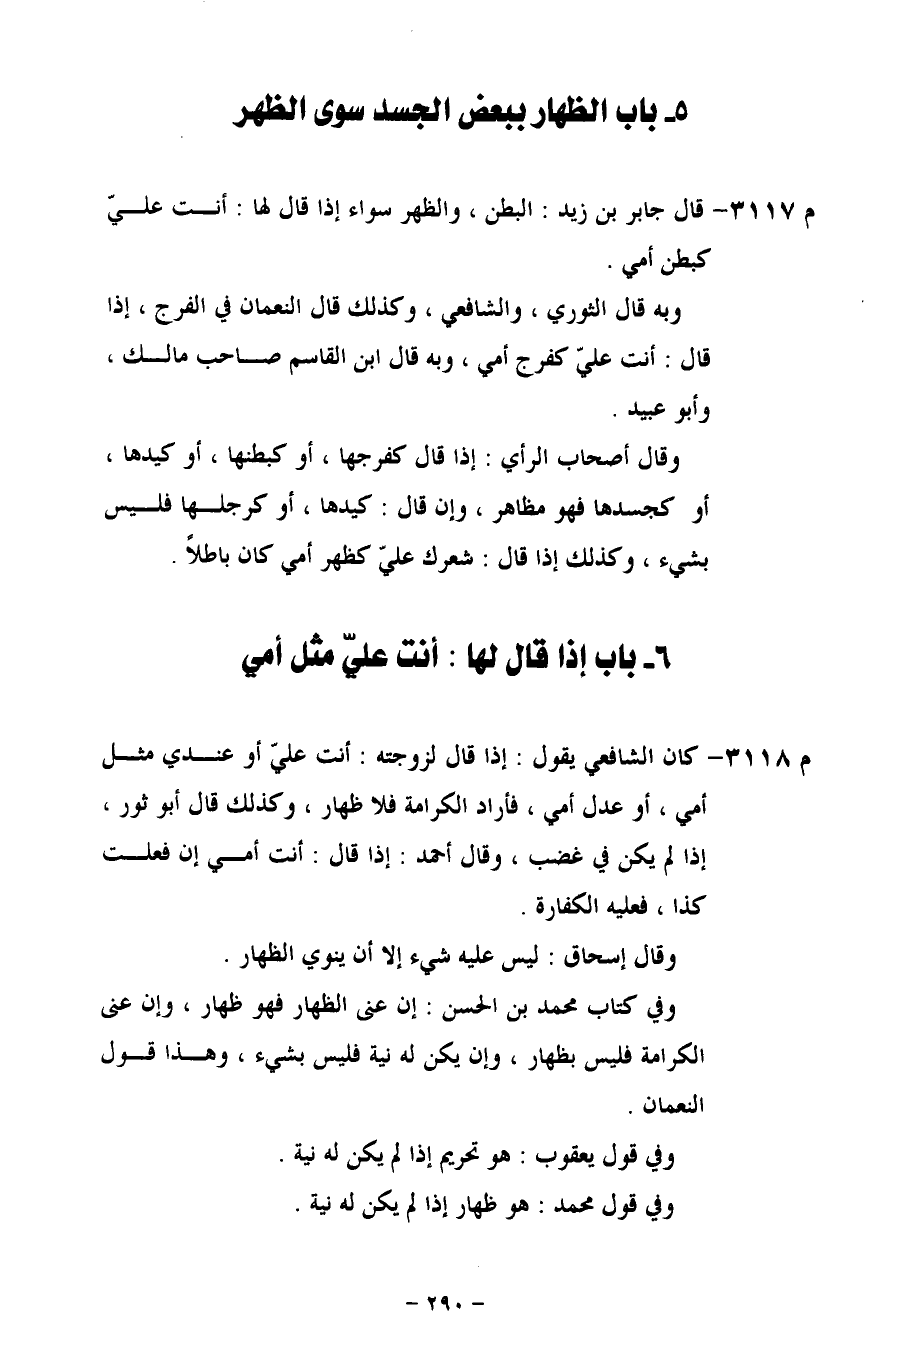 ٥ـ باب الظهار ببعض الجسد سوى الظهر
م ٣١١٧− قال جابر بن زيد : البطن ، والظهر سواء إذا قال لها : أنت عليّ
كبطن أمي .
وبه قال الثوري ، والشافعي ، وكذلك قال النعمان في الفرج ، إذا
قال : أنت عليّ كفرج أمي ، وبه قال ابن القاسم صاحب مالك ،
وأبو عبيد .
وقال أصحاب الرأي : إذا قال كفرجها ، أو كبطنها ، أو كيدها ،
أو كجسدها فهو مظاهر ، وإن قال : كيدها ، أو كرجلها فليس
بشيء ، وكذلك إذا قال : شعرك عليّ كظهر أمي كان باطلاً .
٦ـ باب إذا قال لها : أنت عليّ مثل أمي
م ٣١١٨− كان الشافعي يقول : إذا قال لزوجته : أنت عليّ أو عندي مثل
أمي ، أو عدل أمي ، فأراد الكرامة فلا ظهار ، وكذلك قال أبو ثور ،
إذا لم يكن في غضب ، وقال أحمد : إذا قال : أنت أمي إن فعلت
كذا ، فعليه الكفارة .
وقال إسحاق : ليس عليه شيء إلا أن ينوي الظهار .
وفي كتاب محمد بن الحسن : إن عنى الظهار فهو ظهار ، وإن عنى
الكرامة فليس بظهار ، وإن يكن له نية فليس بشيء ، وهذا قول
النعمان .
وفي قول يعقوب : هو تحريم إذا لم يكن له نية .
وفي قول محمد : هو ظهار إذا لم يكن له نية .
− ٢٩٠ −